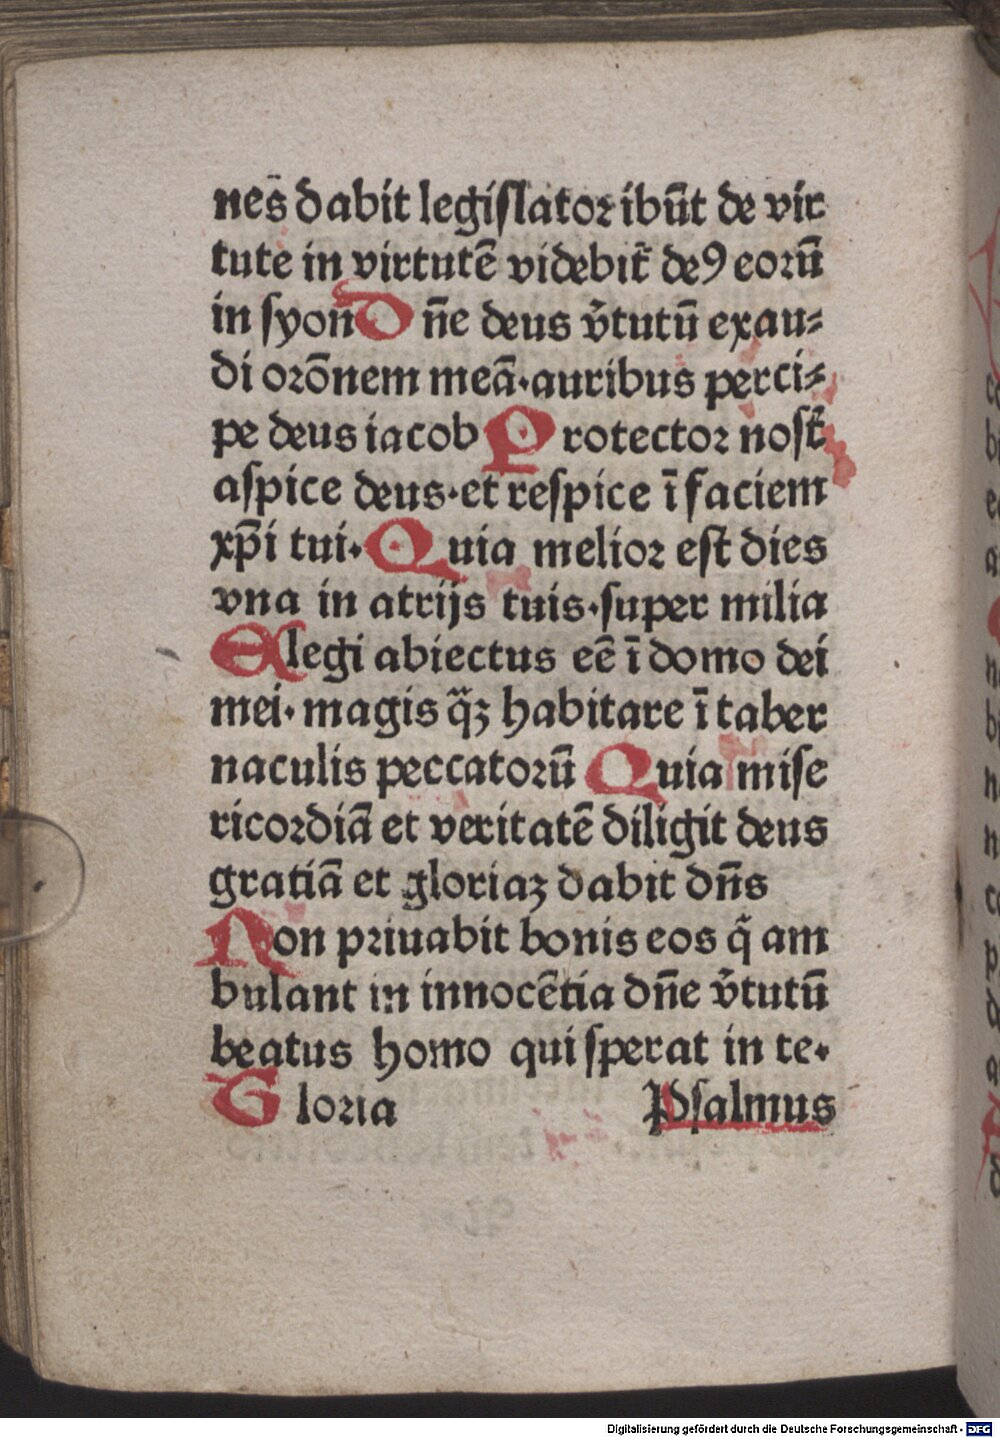 nes̄ dabit legiſlatoꝛ ibūt de vir
tute in virtutē videbit᷑ deꝰ eoꝛū
in ſyon D n̄e deus v̾tutū exau⸗
di oꝛōnem meā·auribus perci⸗
pe deus iacob Protectoꝛ noſt᷑
aſpice deus·et reſpice ī faciem
xp̄i tui· Quia melioꝛ eſt dies
vna in atrijs tuis·ſuper milia
Elegi abiectus eē ī domo dei
mei· magis q̈ꝫ habitare ī taber
naculis peccatoꝛū Quia miſe
ricoꝛdiā et veritatē diligit deus
gratiā et gloriaꝫ dabit dn̄s
Non pꝛiuabit bonis eos q̄ am
bulant in innocētia dn̄e v̾tutū
beatus homo qui ſperat in te·
Gloꝛia Pſalmus
Digitalisierung gefördert durch die Deutsche Forschungsgemeinschaft - DFG